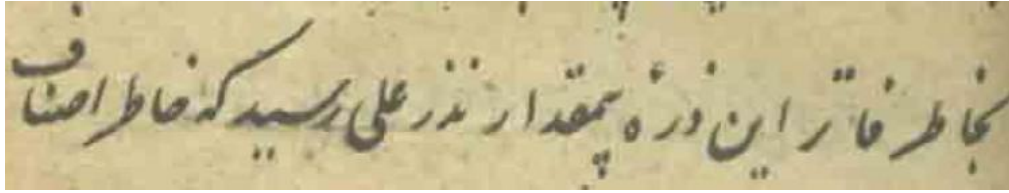 بخاطر فاتر این ذرهٔ بیمقدار نذر علی رسید که خاطر اصناف